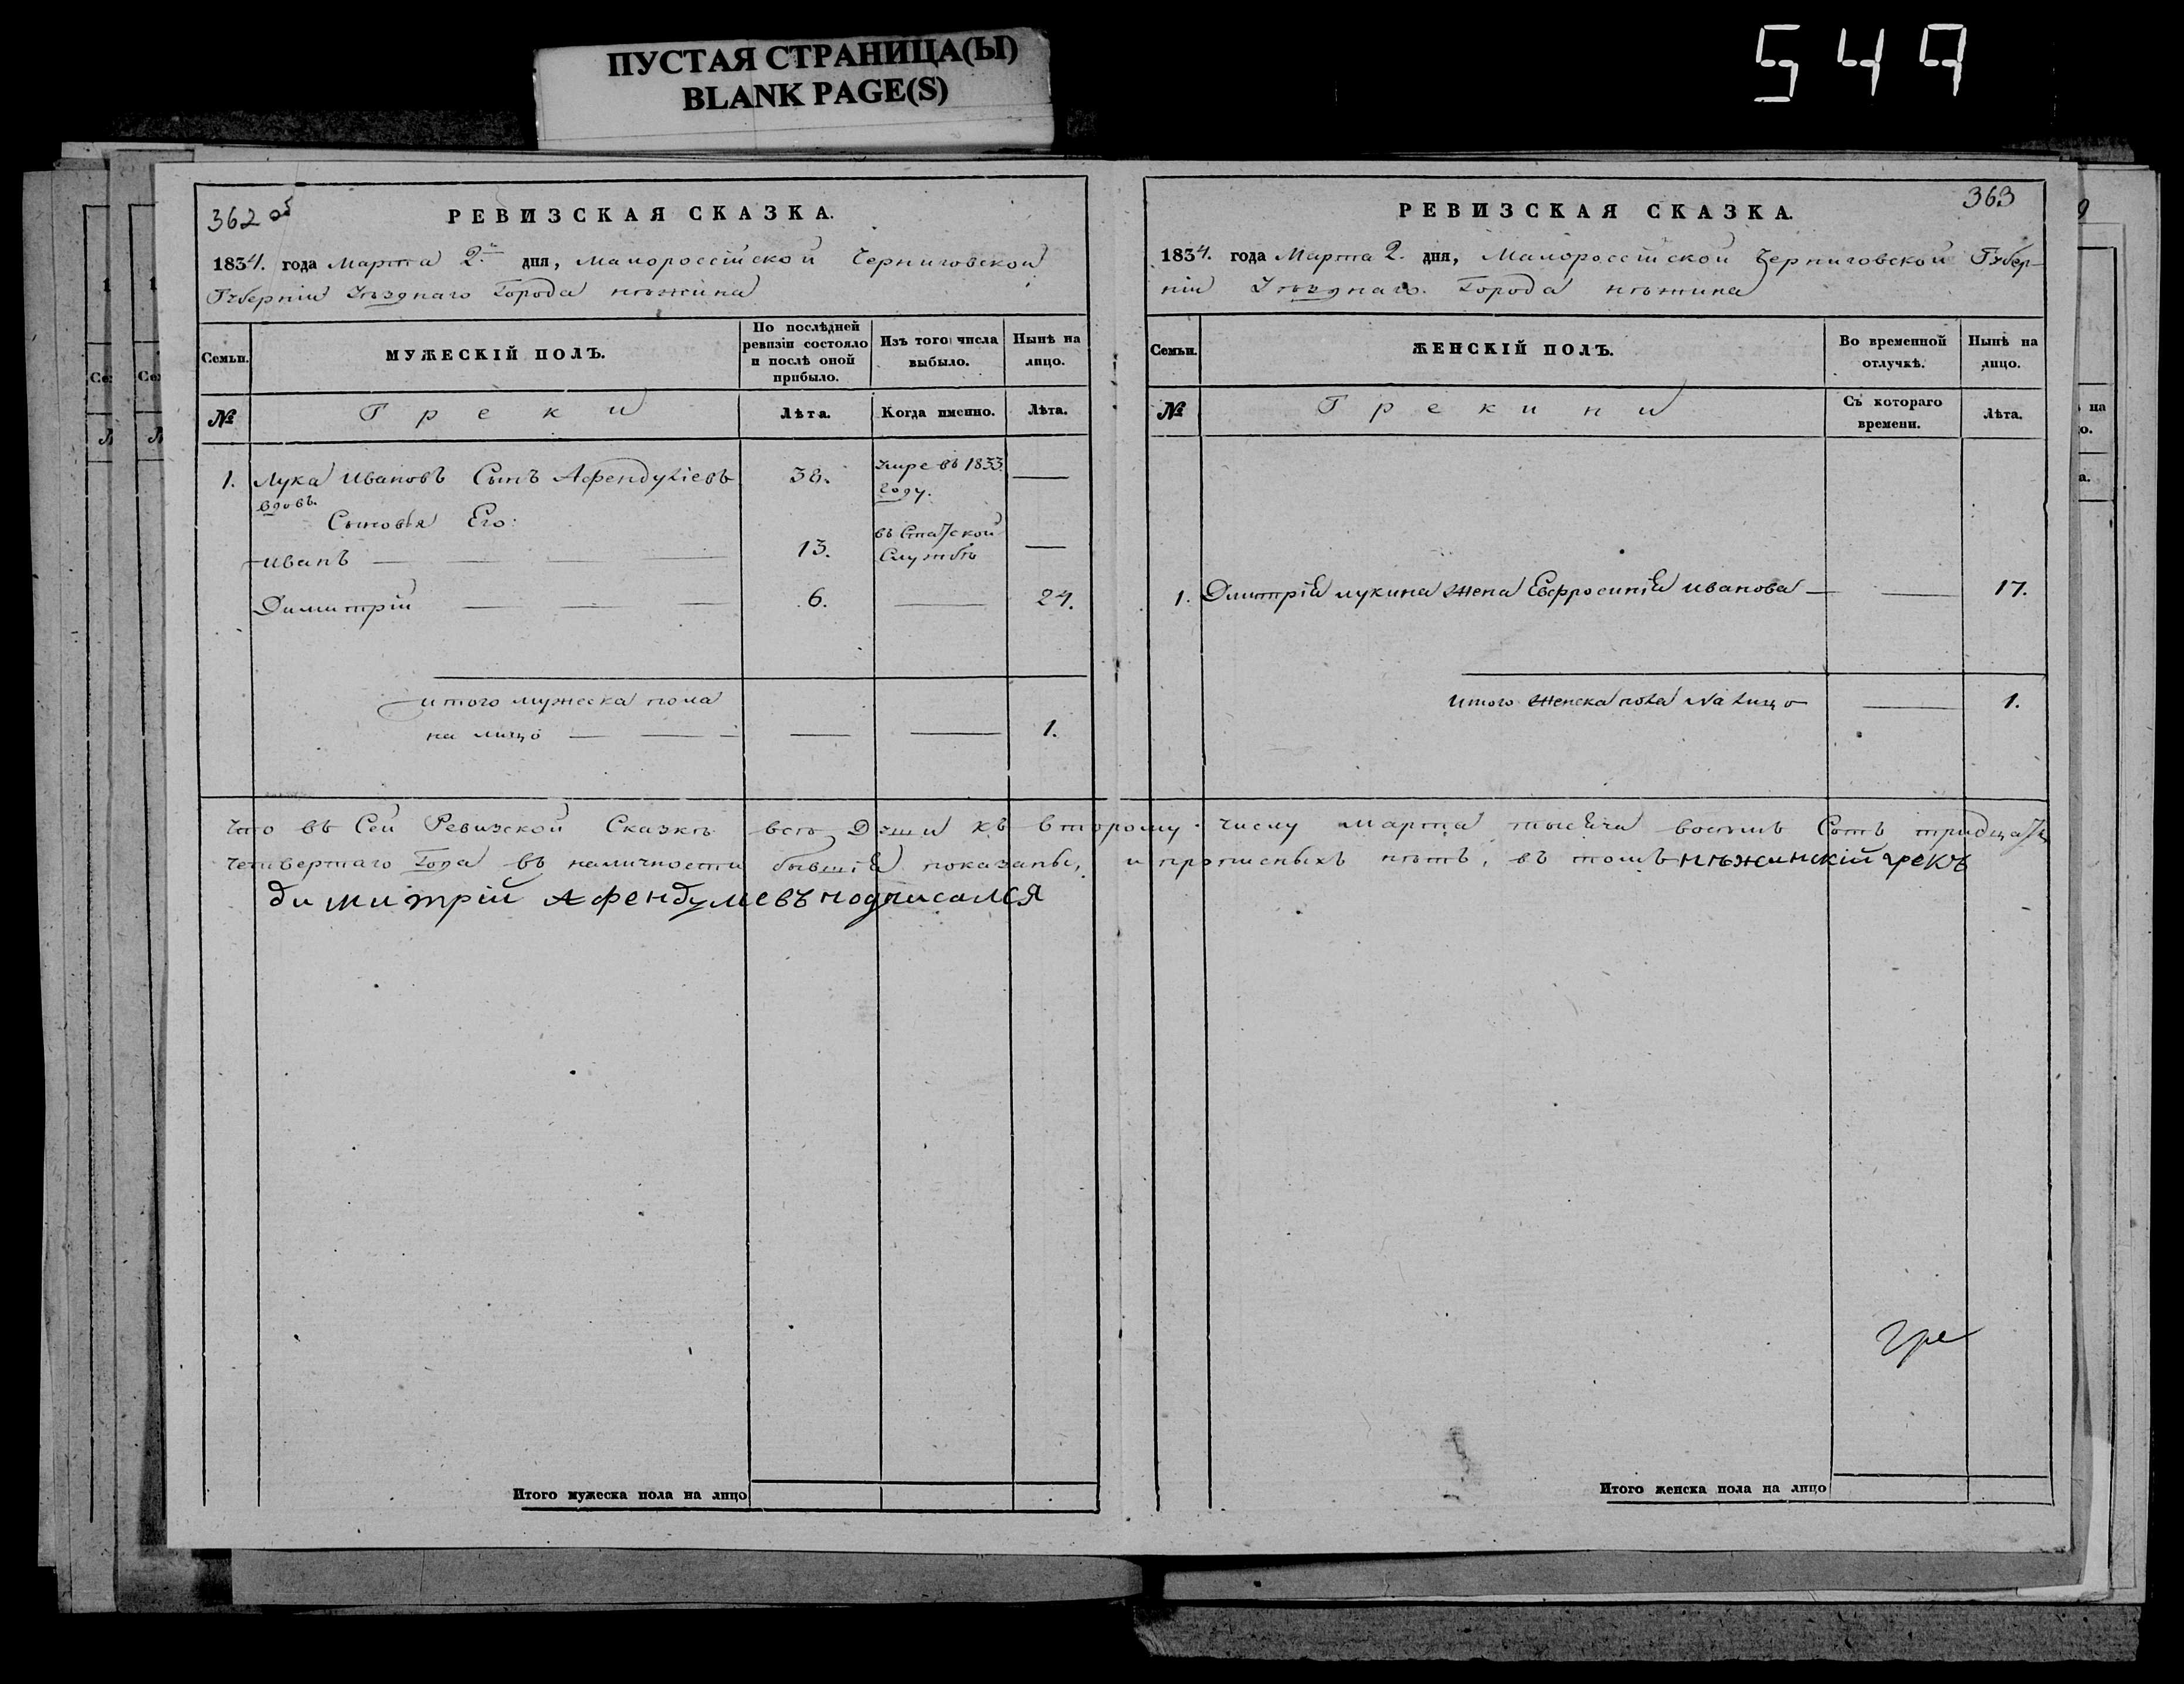 ПУСТАЯ СТРАНИЦА(Ы)
BLANK PAGE(S)
549
362 об
РЕВИЗСКАЯ СКАЗКА.
1834. года Марта 2го дня, Малороссійской Черниговской
Губерніи Уѣзднаго Города Нѣжина
Семьи.
МУЖЕСКІЙ ПОЛЪ.
По послѣдней ревизіи состояло и послѣ оной прибыло.
Изъ того числа выбыло.
Нынѣ на лицо.
№
Греки
Лѣта.
Когда именно.
Лѣта.
1. Лука Ивановъ Сынъ Афендуліевъ 38. умре въ 1833 —
вдовъ. году.
Сыновья Его:
Иванъ — 13. въ Статской Службѣ —
Димитрій — 6. — 24.
итого мужеска пола
на лицо — — — 1.
363
РЕВИЗСКАЯ СКАЗКА.
1834. года Марта 2. дня, Малороссійской Черниговской Губер-
ніи Уѣзднаго Города Нѣжина
Семьи.
ЖЕНСКІЙ ПОЛЪ.
Во временной отлучкѣ.
Нынѣ на лицо.
№
Грекини
Съ котораго времени.
Лѣта.
1. Дмитрія лукина жена Евфросинія иванова — — 17.
Итого женска пола на лицо — 1.
Что въ Сей Ревизской Сказкѣ всѣ Души къ второму числу марта тысяча восемь Сотъ тридцать
четвертаго Года въ наличности бывшія показаны, и прописныхъ нѣтъ, въ томъ нѣжинскій грекъ
димитрій Афендулевъ подписался
гре
Итого мужеска пола на лицо
Итого женска пола на лицо